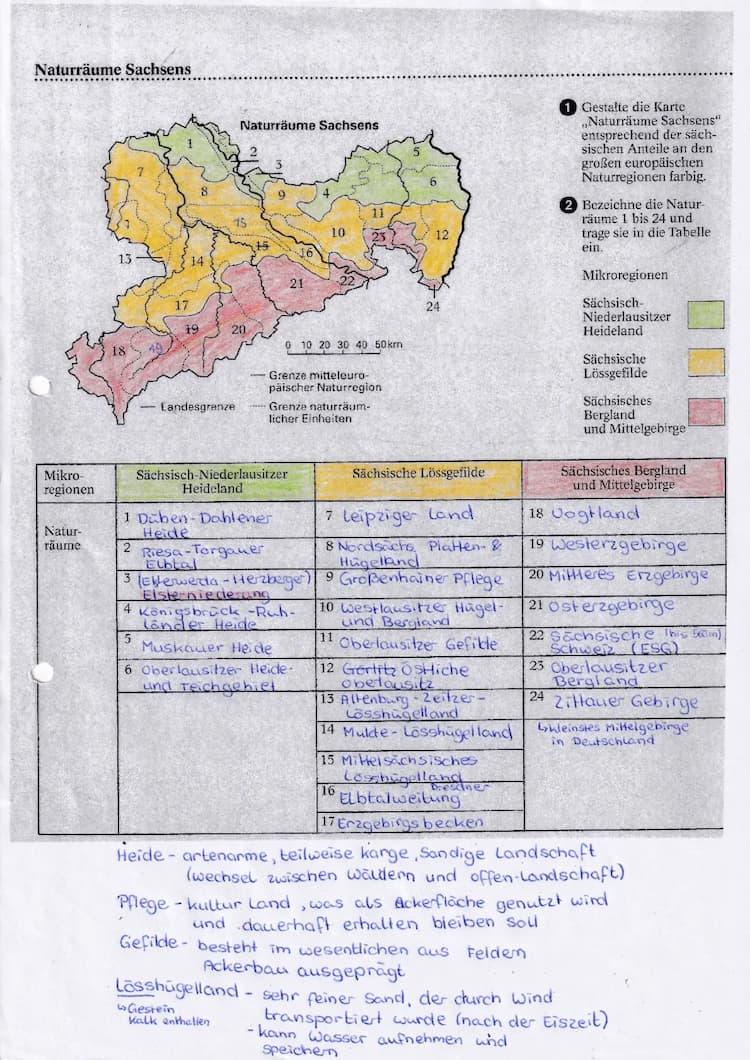 Naturräume Sachsens
Naturräume Sachsens
1
2
3
4
5
6
7
8
9
10
11
12
13
14
15
15
16
17
18
19
19
20
21
22
23
24
0 10 20 30 40 50km
Grenze mitteleuro-
päischer Naturregion
Landesgrenze
Grenze naturräum-
licher Einheiten
1 Gestalte die Karte
„Naturräume Sachsens“
entsprechend der säch-
sischen Anteile an den
großen europäischen
Naturregionen farbig.
2 Bezeichne die Natur-
räume 1 bis 24 und
trage sie in die Tabelle
ein.
Mikroregionen
Sächsisch-
Niederlausitzer
Heideland
Sächsische
Lössgefilde
Sächsisches
Bergland
und Mittelgebirge
Mikro-
regionen
Sächsisch-Niederlausitzer
Heideland
Sächsische Lössgefilde
Sächsisches Bergland
und Mittelgebirge
Natur-
räume
1 Düben-Dahlener
Heide
2 Riesa-Torgauer
Elbtal
3 (Elsterwerda-Herzberger)
Elsterniederung
4 Königsbrück-Ruh-
länder Heide
5 Muskauer Heide
6 Oberlausitzer Heide-
und Teichgebiet
7 Leipziger Land
8 Nordsächs. Platten- &
Hügelland
9 Großenhainer Pflege
10 Westlausitzer Hügel-
und Bergland
11 Oberlausitzer Gefilde
12 Görlitz Östliche
Oberlausitz
13 Altenburg-Zeitzer-
Lösshügelland
14 Mulde-Lösshügelland
15 Mittelsächsisches
Lösshügelland
16 Dresdner
Elbtalweitung
17 Erzgebirgsbecken
18 Vogtland
19 Westerzgebirge
20 Mittleres Erzgebirge
21 Osterzgebirge
22 Sächsische (bis
Schweiz (ESG)
23 Oberlausitzer
Bergland
24 Zittauer Gebirge
↳kleinstes Mittelgebirge
in Deutschland
Heide - artenarme, teilweise karge, Sandige Landschaft
(wechsel zwischen Wäldern und offen-Landschaft)
Pflege - kultur Land, was als Ackerfläche genutzt wird
und dauerhaft erhalten bleiben soll
Gefilde - besteht im wesentlichen aus Feldern
Ackerbau ausgeprägt
Lösshügelland - sehr feiner Sand, der durch Wind
↳Gestein
transportiert wurde (nach der Eiszeit)
Kalk enthalten
- kann Wasser aufnehmen und
speichern